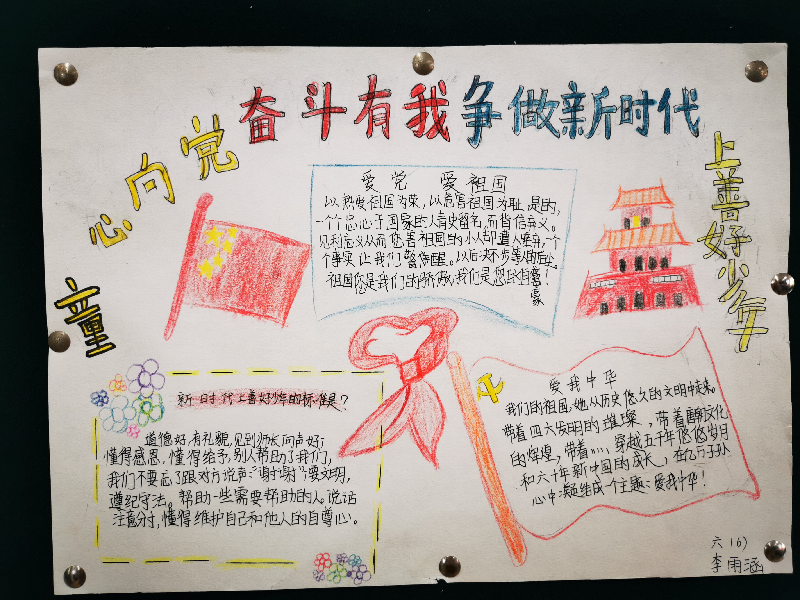 童心向党
奋斗有我争做新时代
上善好少年
爱党 爱祖国
以热爱祖国为荣，以危害祖国为耻，是的，
一个忠心于国家的人青史留名，而背信弃义。
见利忘义从而危害祖国的小人却遭人唾弃，一个
个事实让我们警惕醒。以后决不步美人的后尘。
祖国您是我们的骄傲，我们是您的自豪
豪！
新时代上善好少年的标准是？
道德好，有礼貌，见到师长问声好；
懂得感恩，懂得给予，别人帮助了我们，
我们不要忘了跟对方说声：“谢谢”；要文明，
遵纪守法。帮助一些需要帮助的人。说话
注意分寸，懂得维护自己和他人的自尊心。
爱我中华
我们的祖国，她从历史悠久的文明中走来。
带着四大发明的璀璨，带着唐朝文化
的辉煌，带着……，穿越五千年悠悠岁月
和六十年新中国的成长，在亿万子孙
心中凝结成一个主题：爱我中华！
六（6）
李雨涵